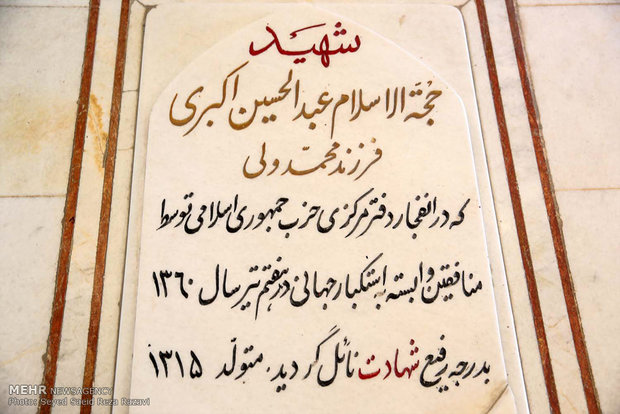 شهید
حجة الاسلام عبدالحسین اکبری
فرزند محمد ولی
که در انفجار دفتر مرکزی حزب جمهوری اسلامی توسط
منافقین وابسته به استکبار جهانی در هفتم تیر سال ۱۳۶۰
بدرجه رفیع شهادت نائل گردید. متولد ۱۳۱۵
MEHR NEWS AGENCY
Photo: Seyed Saeid Reza Razavi